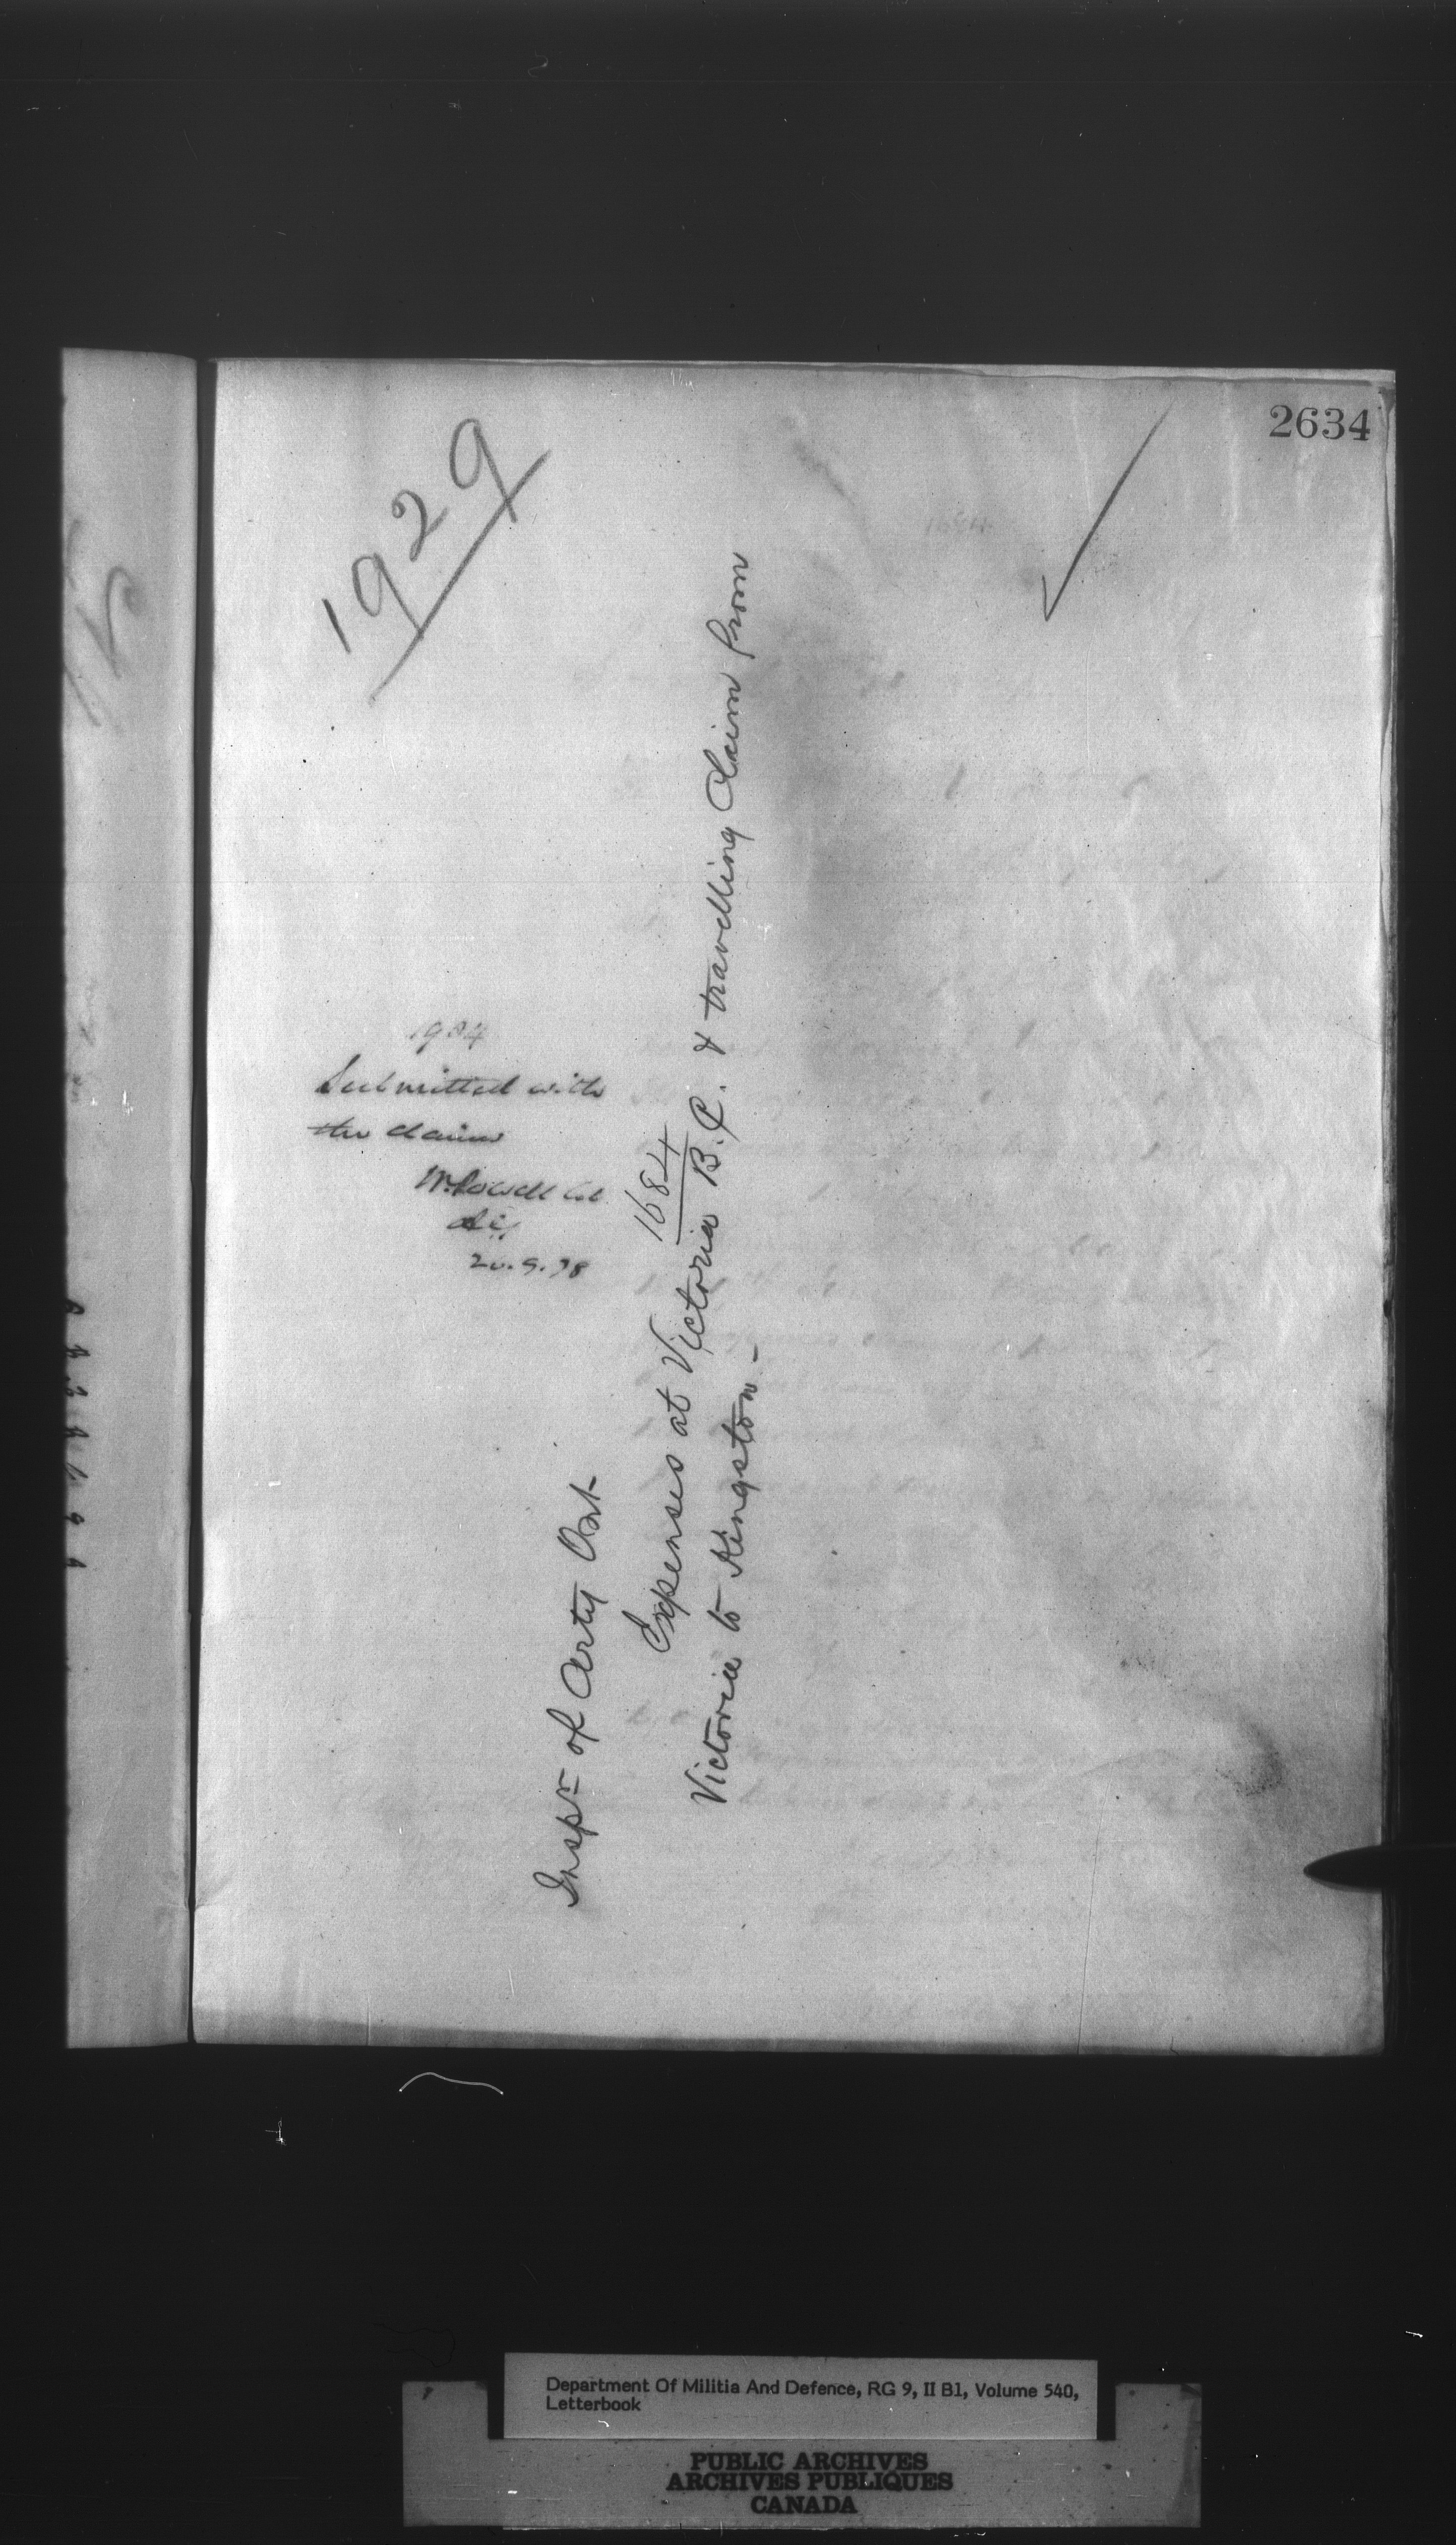 2634
1929
1984
Submitted with
the claim
W. Powell Col
20.9.78
Inspr of Arty Ont
1684
Expenses at Victoria B.C. & travelling Claim from
Victoria to Kingston -
Department Of Militia And Defence, RG 9, II B1, Volume 540,
Letterbook
PUBLIC ARCHIVES
ARCHIVES PUBLIQUES
CANADA